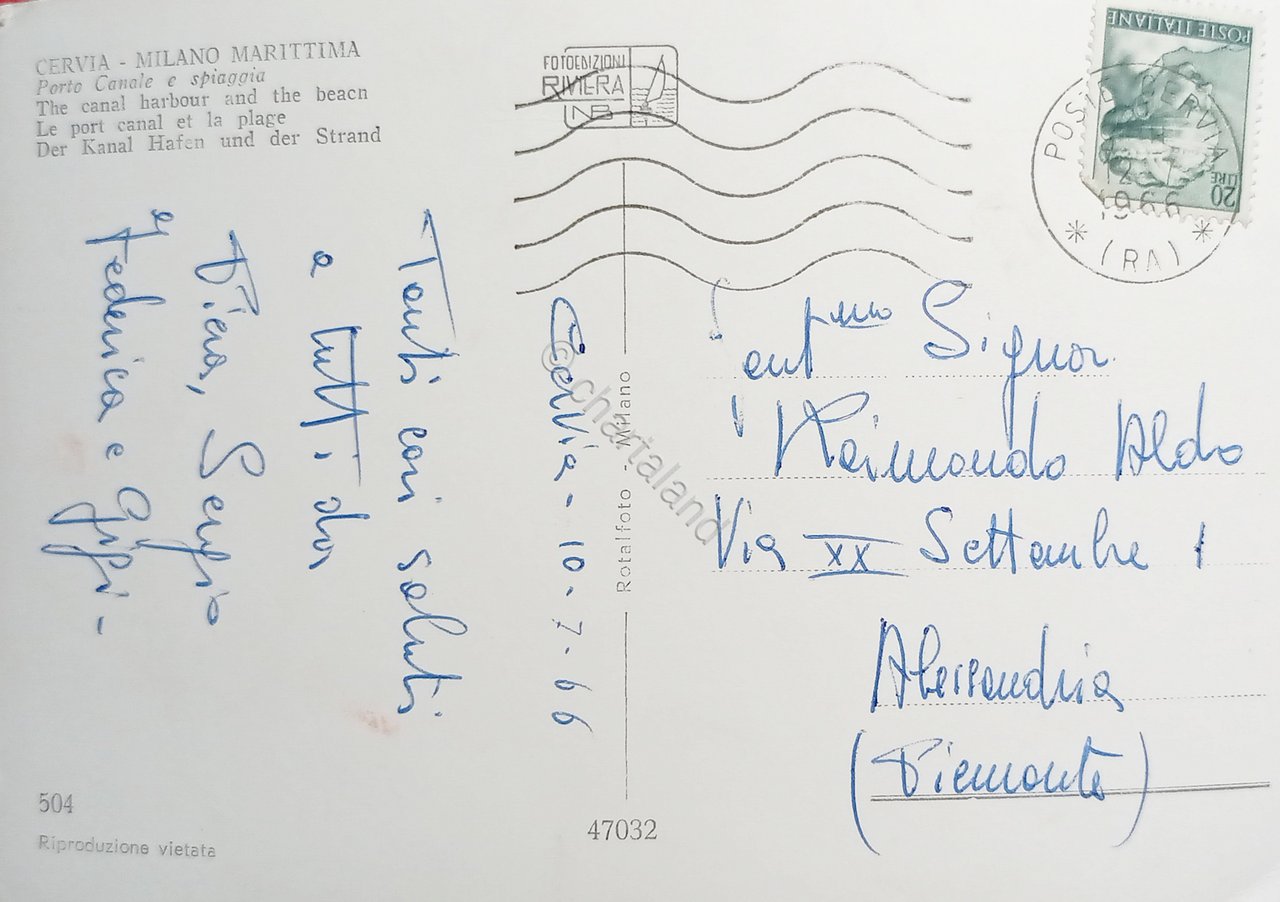 CERVIA - MILANO MARITTIMA
Porto Canale e spiaggia
The canal harbour and the beach
Le port canal et la plage
Der Kanal Hafen und der Strand
FOTOEDIZIONI
RIVIERA
POSTE ITALIANE
LIRE 20
POSTE CERVIA
12-7
1966
(RA)
Cervia - 10-7-66
Tanti cari saluti
a tutti da
Piera, Sergio
e Federica e Gigi -
Signor
Raimondo Aldo
Via XX Settembre 1
Alessandria
(Piemonte)
Rotalfoto - Milano
504
Riproduzione vietata
47032
© chartaland